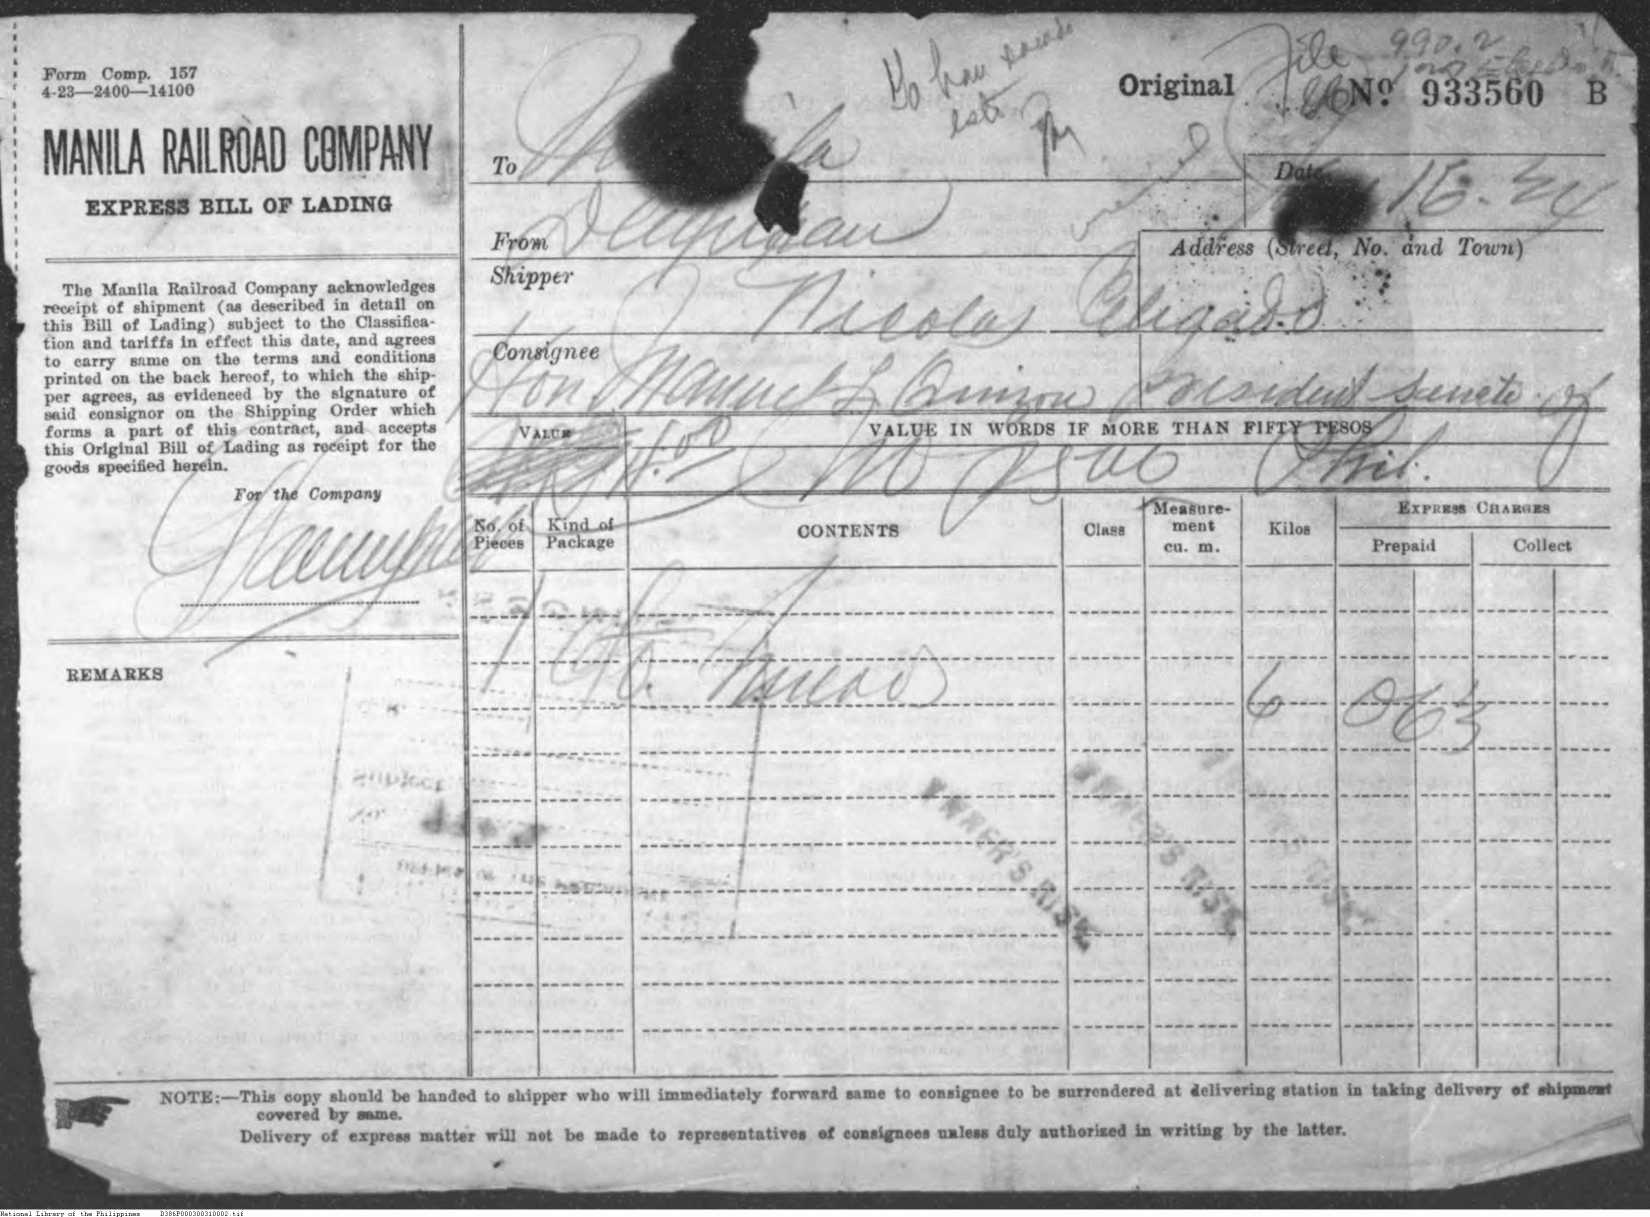 Form Comp. 157
4-23—2400—14100
MANILA RAILROAD COMPANY
EXPRESS BILL OF LADING
The Manila Railroad Company acknowledges
receipt of shipment (as described in detail on
this Bill of Lading) subject to the Classifica-
tion and tariffs in effect this date, and agrees
to carry same on the terms and conditions
printed on the back hereof, to which the ship-
per agrees, as evidenced by the signature of
said consignor on the Shipping Order which
forms a part of this contract, and accepts
this Original Bill of Lading as receipt for the
goods specified herein.
For the Company
REMARKS
File 990.2
Original
Nº 933560 B
To
Date 15. 24
From
Address (Street, No. and Town)
Shipper
Nicolas
Consignee
Hon. Manuel L Quezon President Senate of
VALUE
VALUE IN WORDS IF MORE THAN FIFTY PESOS
Phil.
No. of Pieces
Kind of Package
CONTENTS
Class
Measure-
ment
cu. m.
Kilos
EXPRESS CHARGES
Prepaid
Collect
1
6 063
OWNER'S RISK
OWNER'S RISK
OWNER'S RISK
NOTE:—This copy should be handed to shipper who will immediately forward same to consignee to be surrendered at delivering station in taking delivery of shipment
covered by same.
Delivery of express matter will not be made to representatives of consignees unless duly authorized in writing by the latter.
National Library of the Philippines D386P000300310002.tif